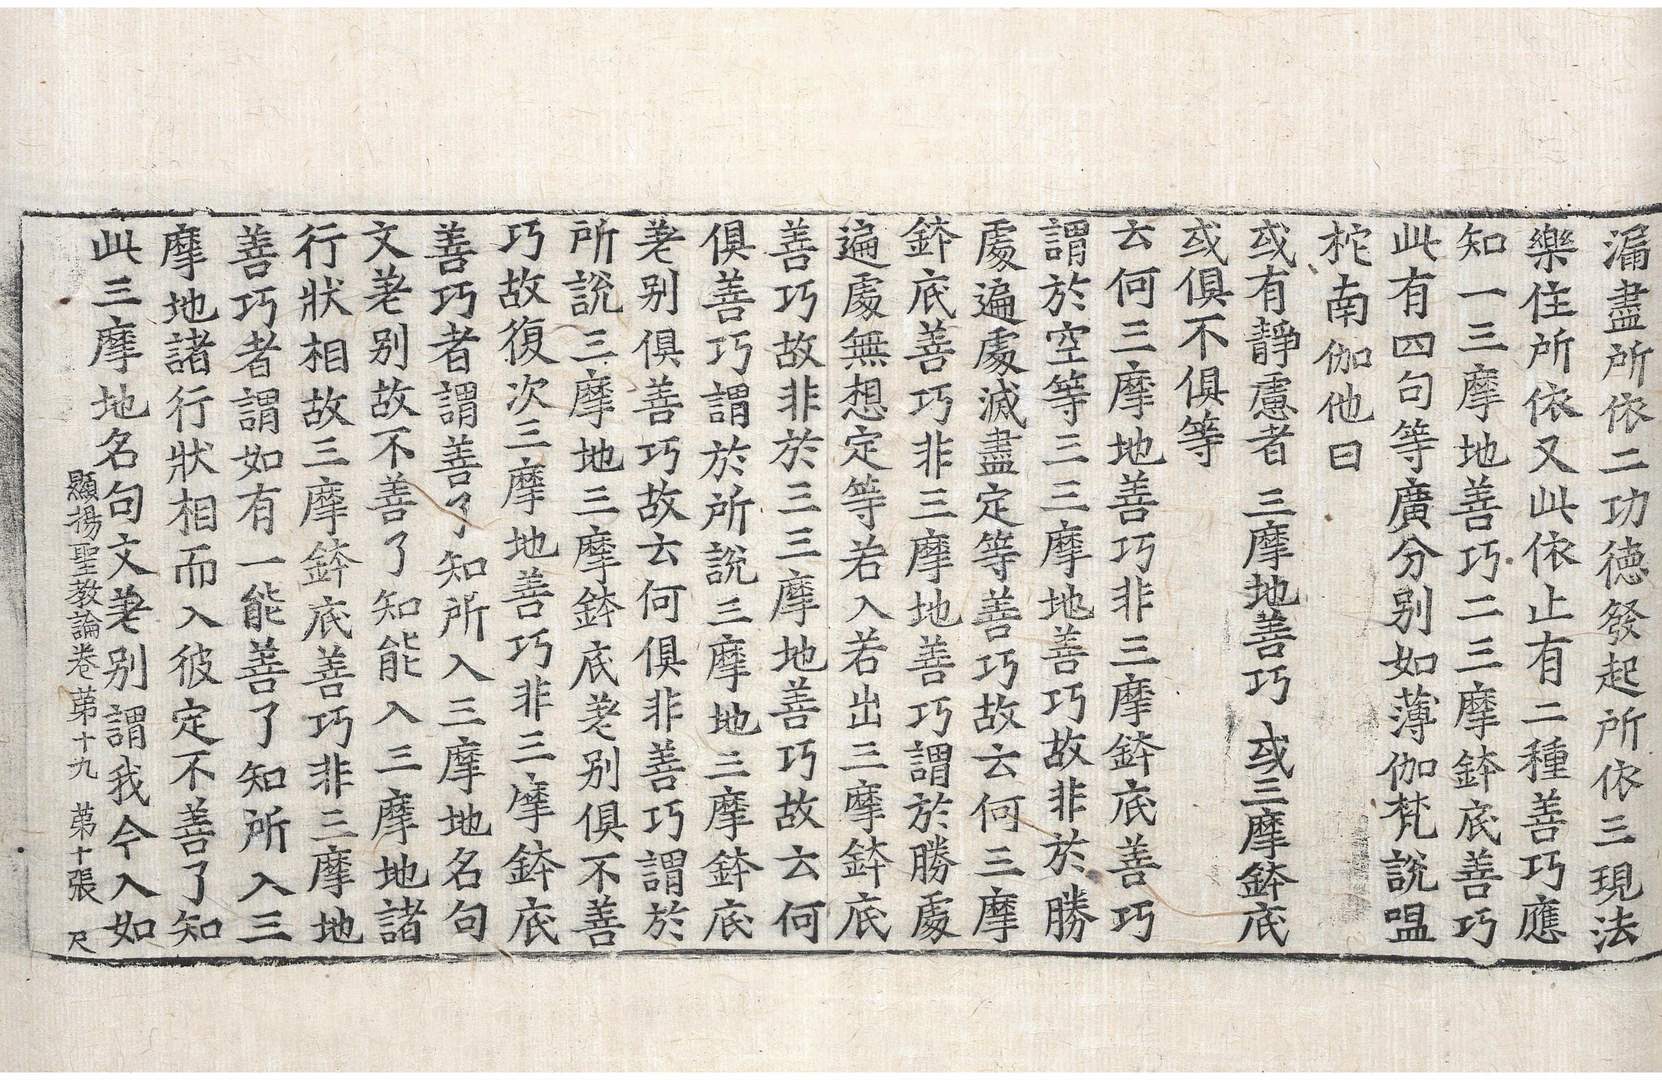 漏盡所依二功德發起所依三現法
樂住所依又此依止有二種善巧應
知一三摩地善巧二三摩鉢底善巧
此有四句等廣分別如薄伽梵說嗢
柁南伽他曰
或有靜慮者 三摩地善巧 或三摩鉢底
或俱不俱等
云何三摩地善巧非三摩鉢底善巧
謂於空等三三摩地善巧故非於勝
處遍處滅盡定等善巧故云何三摩
鉢底善巧非三摩地善巧謂於勝處
遍處無想定等若入若出三摩鉢底
善巧故非於三三摩地善巧故云何
俱善巧謂於所說三摩地三摩鉢底
差別俱善巧故云何俱非善巧謂於
所說三摩地三摩鉢底差別俱不善
巧故復次三摩地善巧非三摩鉢底
善巧者謂善了知所入三摩地名句
文差別故不善了知能入三摩地諸
行狀相故三摩鉢底善巧非三摩地
善巧者謂如有一能善了知所入三
摩地諸行狀相而入彼定不善了知
此三摩地名句文差別謂我今入如
顯揚聖教論卷第十九 第十張 尺